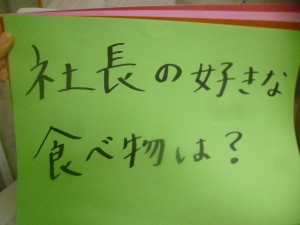 社長の好きな
食べ物は?